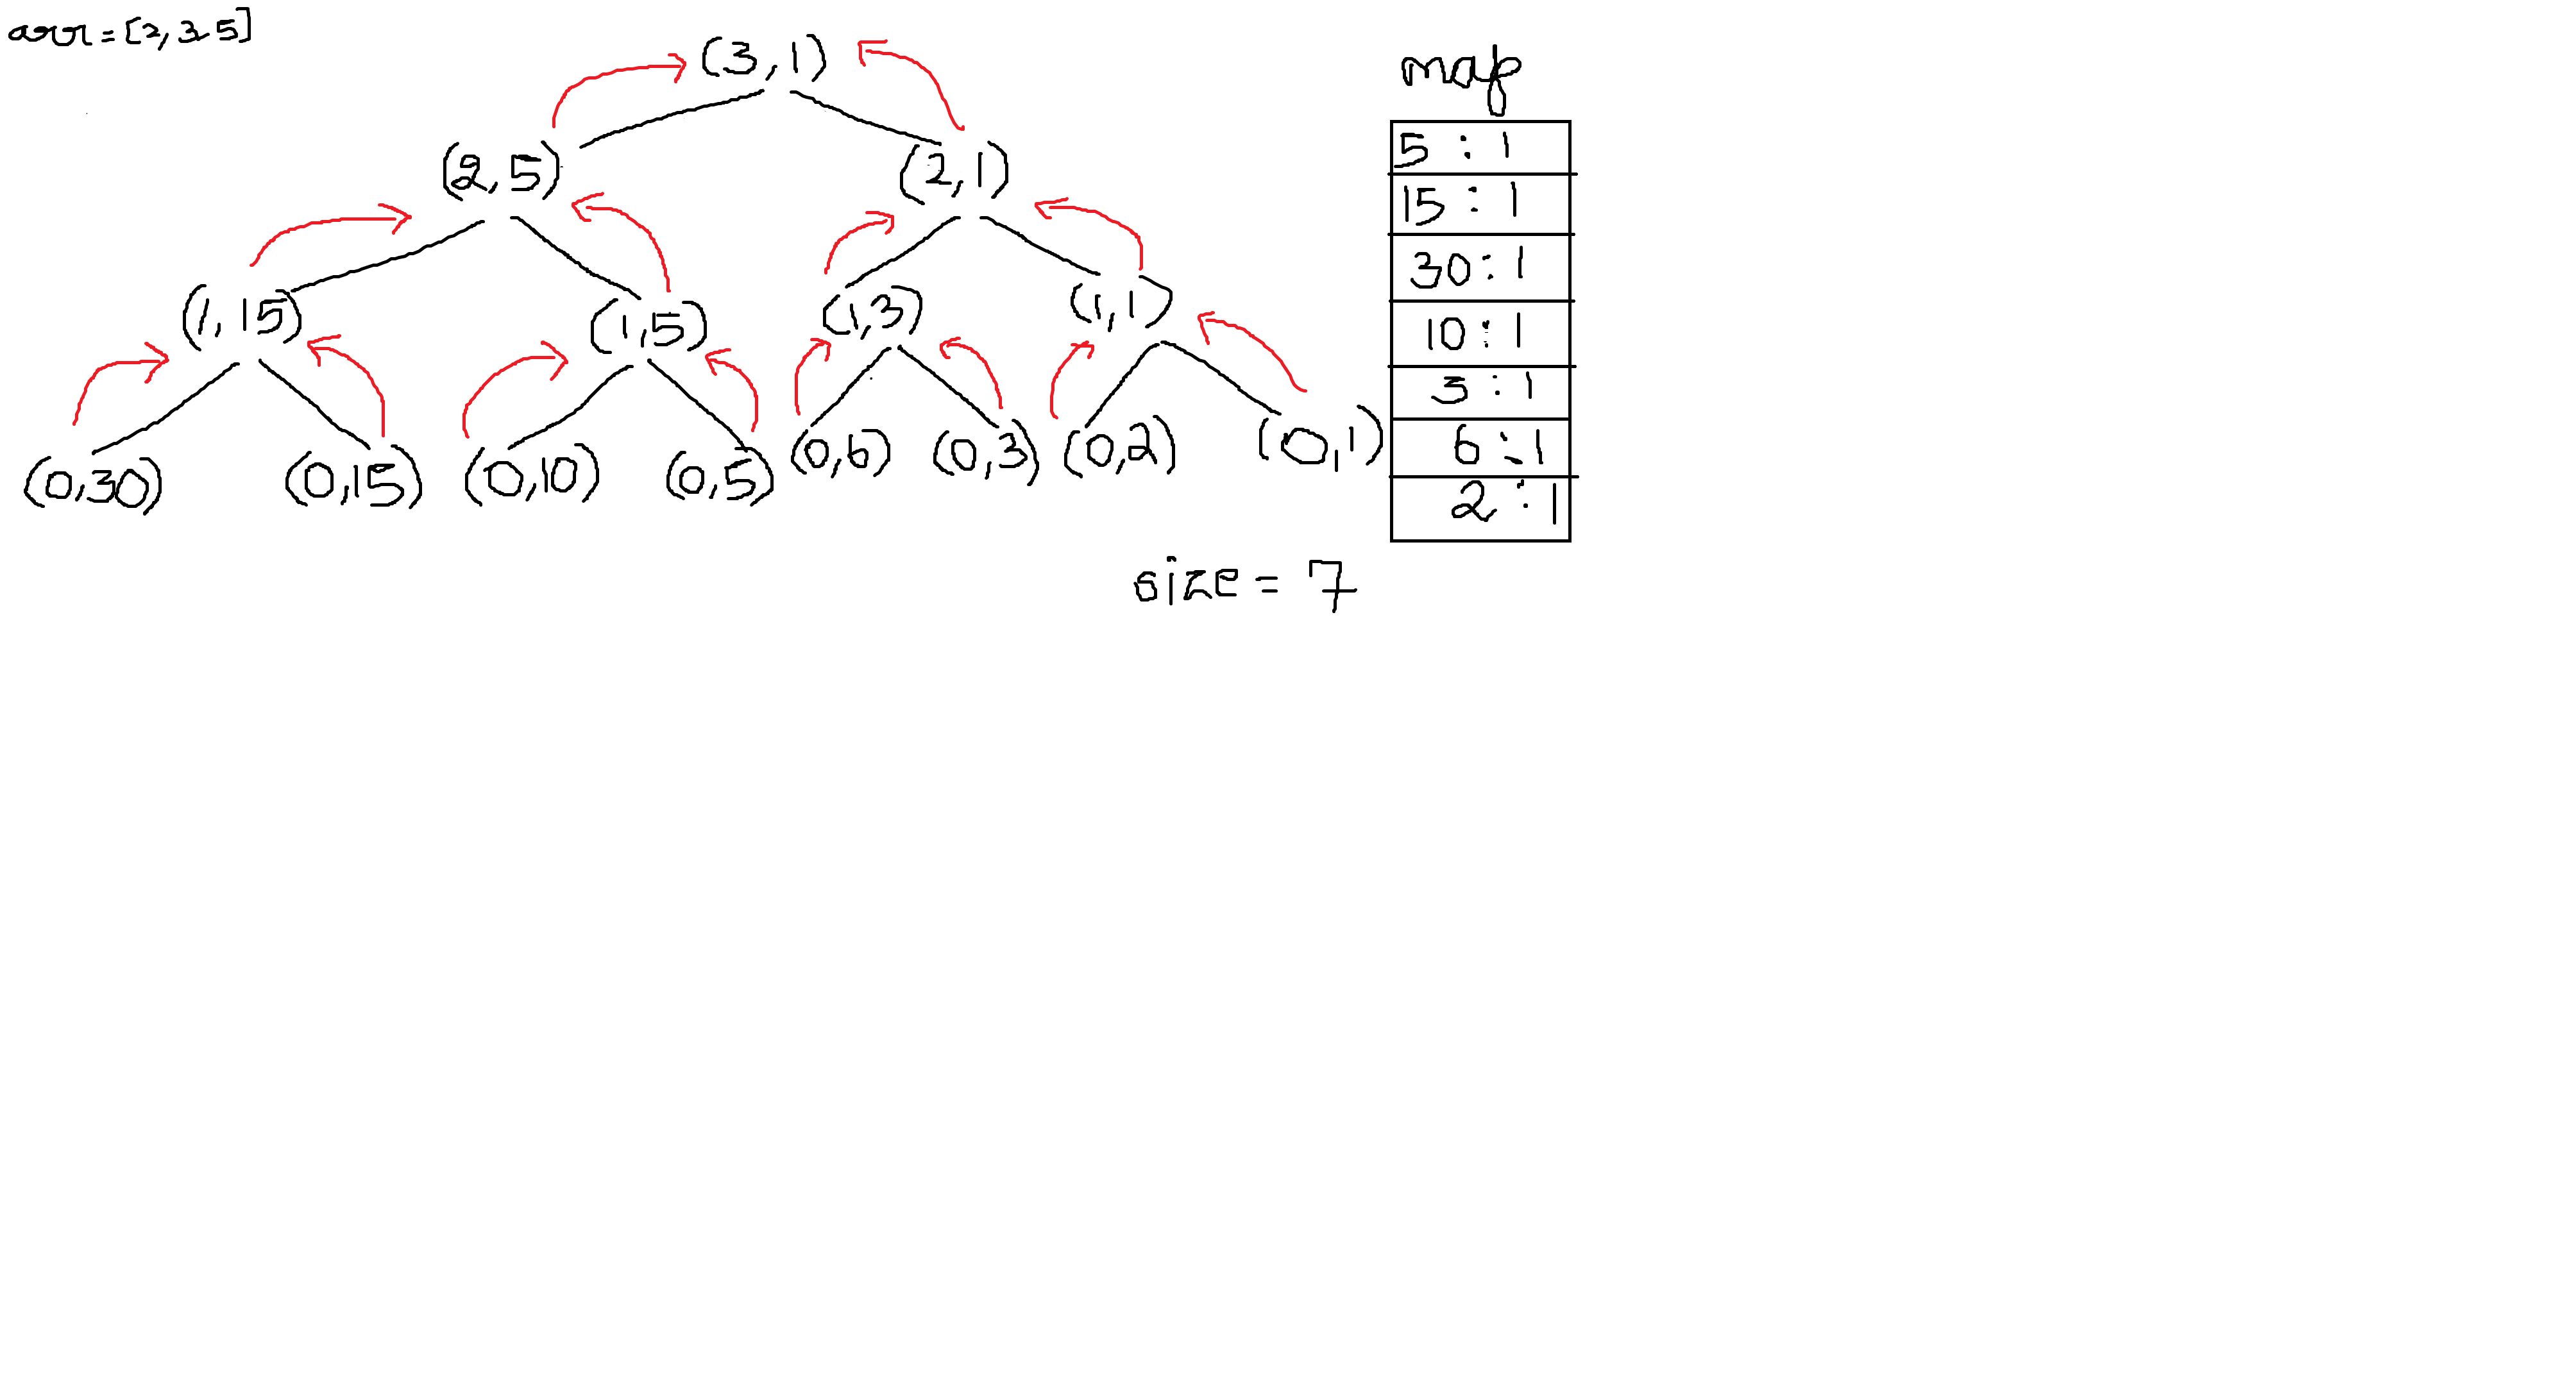 arr = [2, 3 5]
(3, 1)
(2, 5) (2, 1)
(1, 15) (1, 5) (1, 3) (1, 1)
(0, 30) (0, 15) (0, 10) (0, 5) (0, 6) (0, 3) (0, 2) (0, 1)
map
5 : 1
15 : 1
30 : 1
10 : 1
3 : 1
6 : 1
2 : 1
size = 7